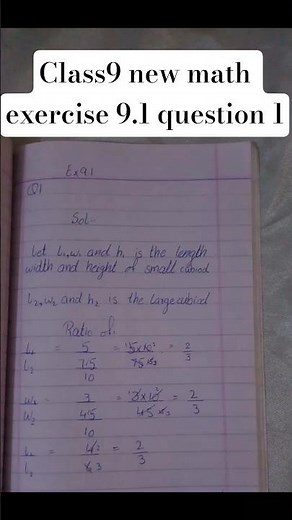 Class9 new math
exercise 9.1 question 1
Ex 9.1
Q1
Sol-
Let L₁, w₁ and h₁ is the length
width and height of small cuboid
L₂, w₂ and h₂ is the large cuboid
Ratio of
L₁/L₂ = 5/(7.5/10) = 5×10/75 = 2/3
w₁/w₂ = 3/(45/10) = 3×10/45 = 2/3
= 2/3